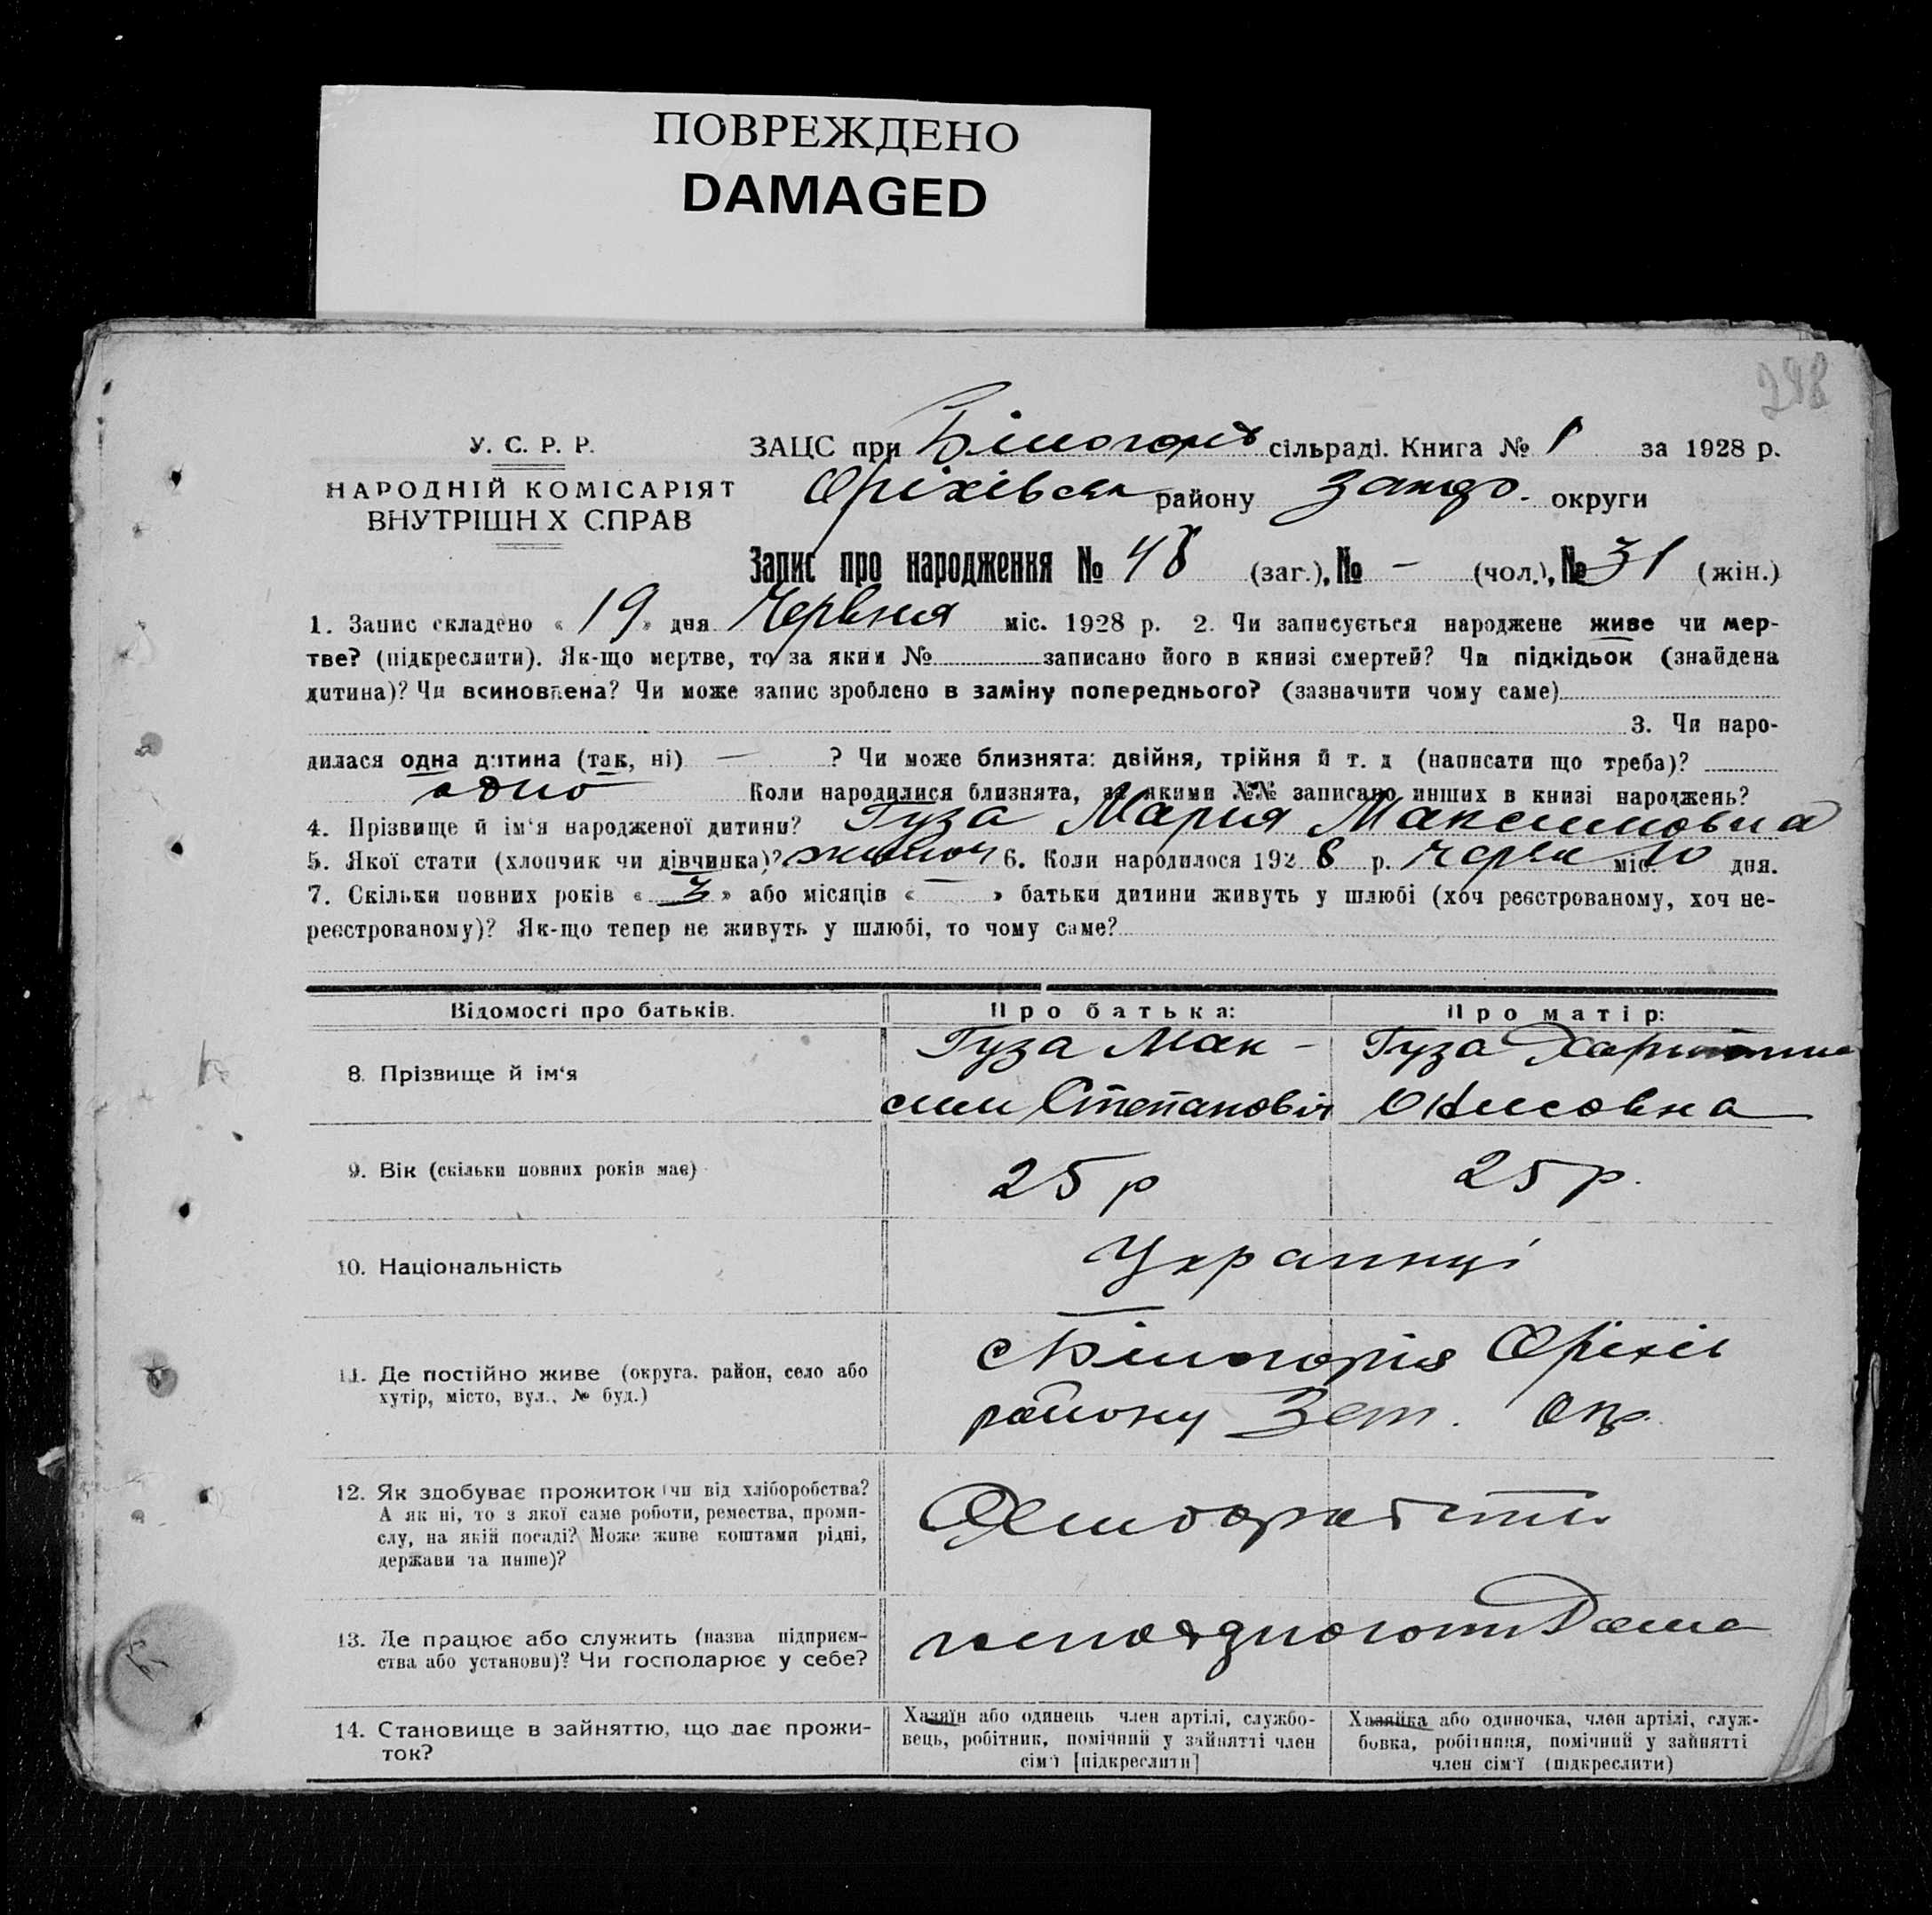 ПОВРЕЖДЕНО
DAMAGED
298
У. С. Р. Р.
НАРОДНІЙ КОМІСАРІЯТ
ВНУТРІШН Х СПРАВ
ЗАЦС при Білогорів сільраді. Книга № 1 за 1928 р.
Оріхівськ району Запор. округи
Запис про народження № 48 (заг.), № — (чол.), № 31 (жін.)
1. Запис складено « 19 » дня Червня міс. 1928 р. 2. Чи записується народжене живе чи мер-
тве? (підкреслити). Як-що мертве, то за яким № записано його в книзі смертей? Чи підкідьок (знайдена
дитина)? Чи всиновлена? Чи може запис зроблено в заміну попереднього? (зазначити чому саме)
3. Чи наро-
дилася одна дитина (так, ні) — ? Чи може близнята: двійня, трійня й т. д (написати що треба)?
одно Коли народилися близнята, за якими №№ записано инших в книзі народжень?
4. Прізвище й ім'я народженої дитини? Гуза Мария Максимовна
5. Якої стати (хлопчик чи дівчинка)? жіноч 6. Коли народилося 1928 р. червн міс. 10 дня.
7. Скільки повних років « 3 » або місяців « — » батьки дитини живуть у шлюбі (хоч реєстрованому, хоч не-
реєстрованому)? Як-що тепер не живуть у шлюбі, то чому саме?
Відомості про батьків.
Про батька:
Про матір:
8. Прізвище й ім'я
Гуза Мак-
сим Степановіч
Гуза Харитина
9. Вік (скільки повних років має)
25 р
25 р.
10. Національність
Українці
11. Де постійно живе (округа, район, село або
хутір, місто, вул., № буд.)
с Білогорія Оріхів
району Зап. Окр.
12. Як здобуває прожиток (чи від хліборобства?
А як ні, то з якої саме роботи, ремества, проми-
слу, на якій посаді? Може живе коштами рідні,
держави та инше)?
13. Де працює або служить (назва підприєм-
ства або установи)? Чи господарює у себе?
14. Становище в зайняттю, що дає прожи-
ток?
Хазяїн або одинець член артілі, службо-
вець, робітник, помічний у зайнятті член
сім'ї [підкреслити]
Хазяйка або одиночка, член артілі, служ-
бовка, робітниця, помічний у зайнятті
член сім'ї (підкреслити)